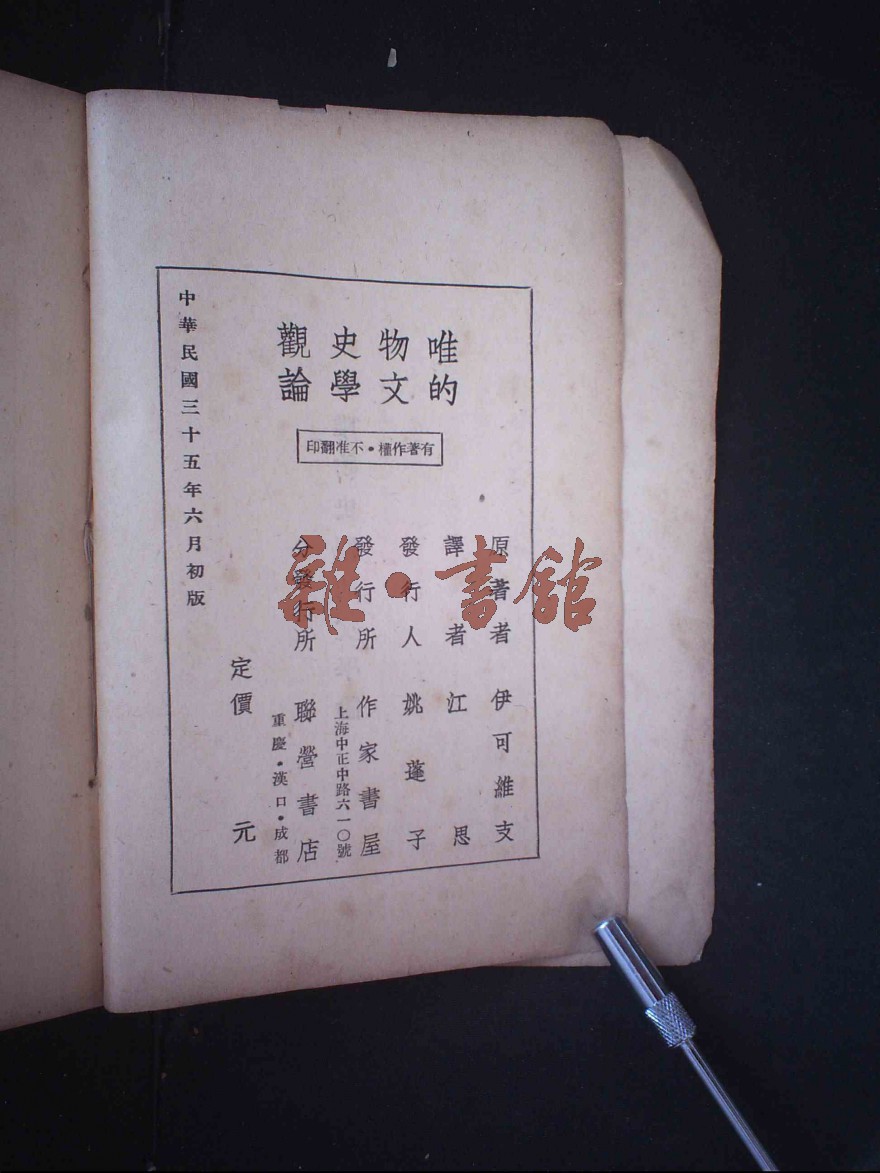 唯的
物文
史學
觀論
有著作權•不准翻印
原著者 伊可維支
譯者 江思
發行人 姚蓬子
發行所 作家書屋
上海中正中路六一〇號
分發行所 聯營書店
重慶•漢口•成都
定價 元
中華民國三十五年六月初版
雜•書館